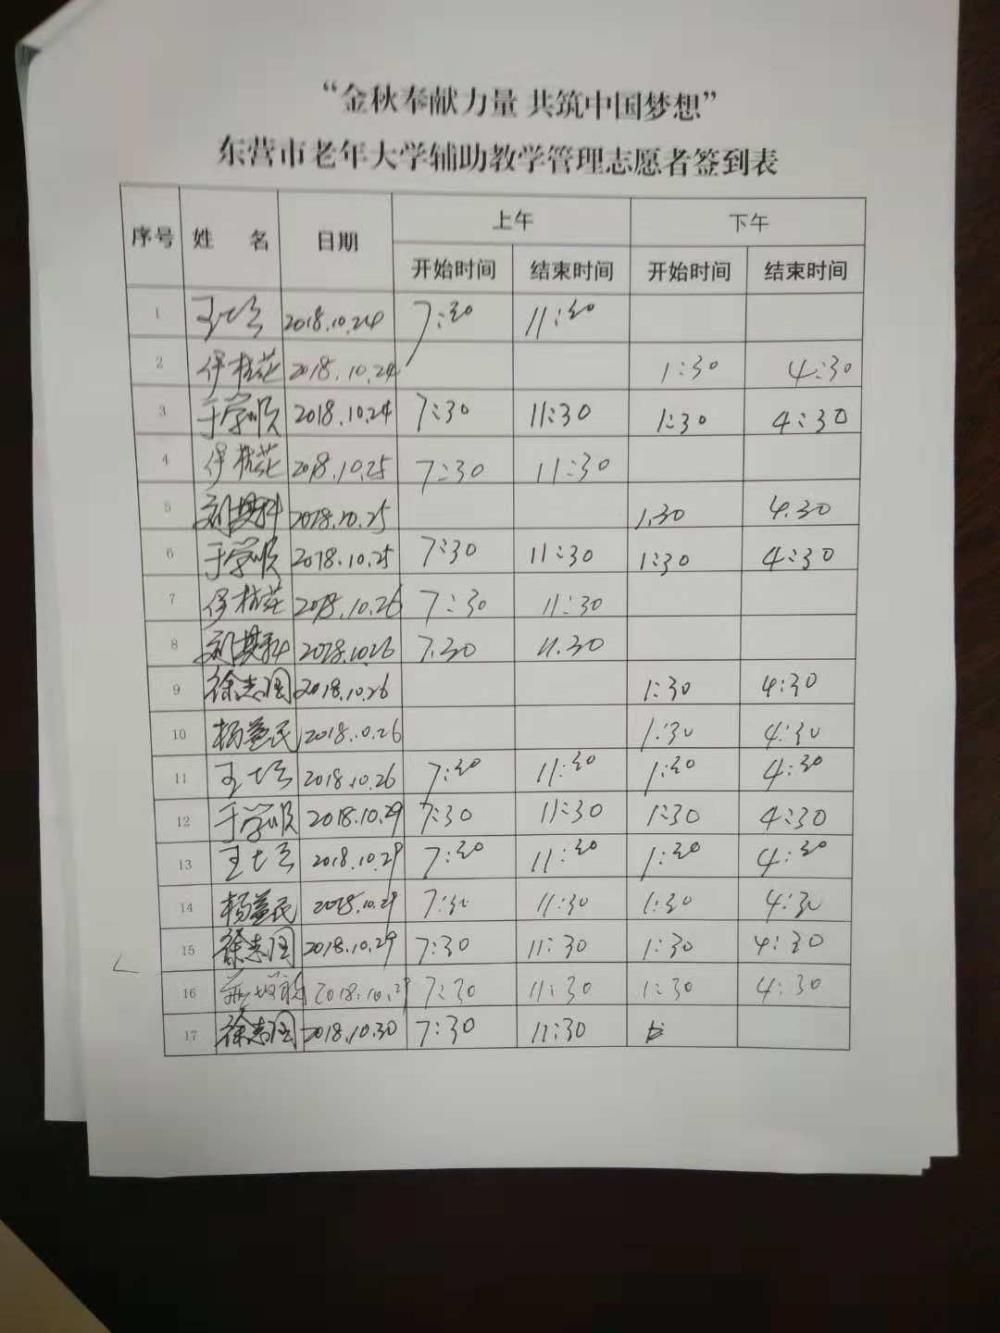 “金秋奉献力量 共筑中国梦想”
东营市老年大学辅助教学管理志愿者签到表
序号 姓 名 日期 上午 下午
开始时间 结束时间 开始时间 结束时间
1 2018.10.24 7:30 11:30
2 伊桂花 2018.10.24 1:30 4:30
3 于学顺 2018.10.24 7:30 11:30 1:30 4:30
4 伊桂花 2018.10.25 7:30 11:30
5 刘其科 2018.10.25 1.30 4.30
6 于学顺 2018.10.25 7:30 11:30 1:30 4:30
7 伊桂花 2018.10.26 7:30 11:30
8 刘其科 2018.10.26 7.30 11.30
9 徐志国 2018.10.26 1:30 4:30
10 杨益民 2018.10.26 1:30 4:30
11 2018.10.26 7:30 11:30 1:30 4:30
12 于学顺 2018.10.29 7:30 11:30 1:30 4:30
13 2018.10.29 7:30 11:30 1:30 4:30
14 杨益民 2018.10.29 7:30 11:30 1:30 4:30
15 徐志国 2018.10.29 7:30 11:30 1:30 4:30
16 2018.10.29 7:30 11:30 1:30 4:30
17 徐志国 2018.10.30 7:30 11:30